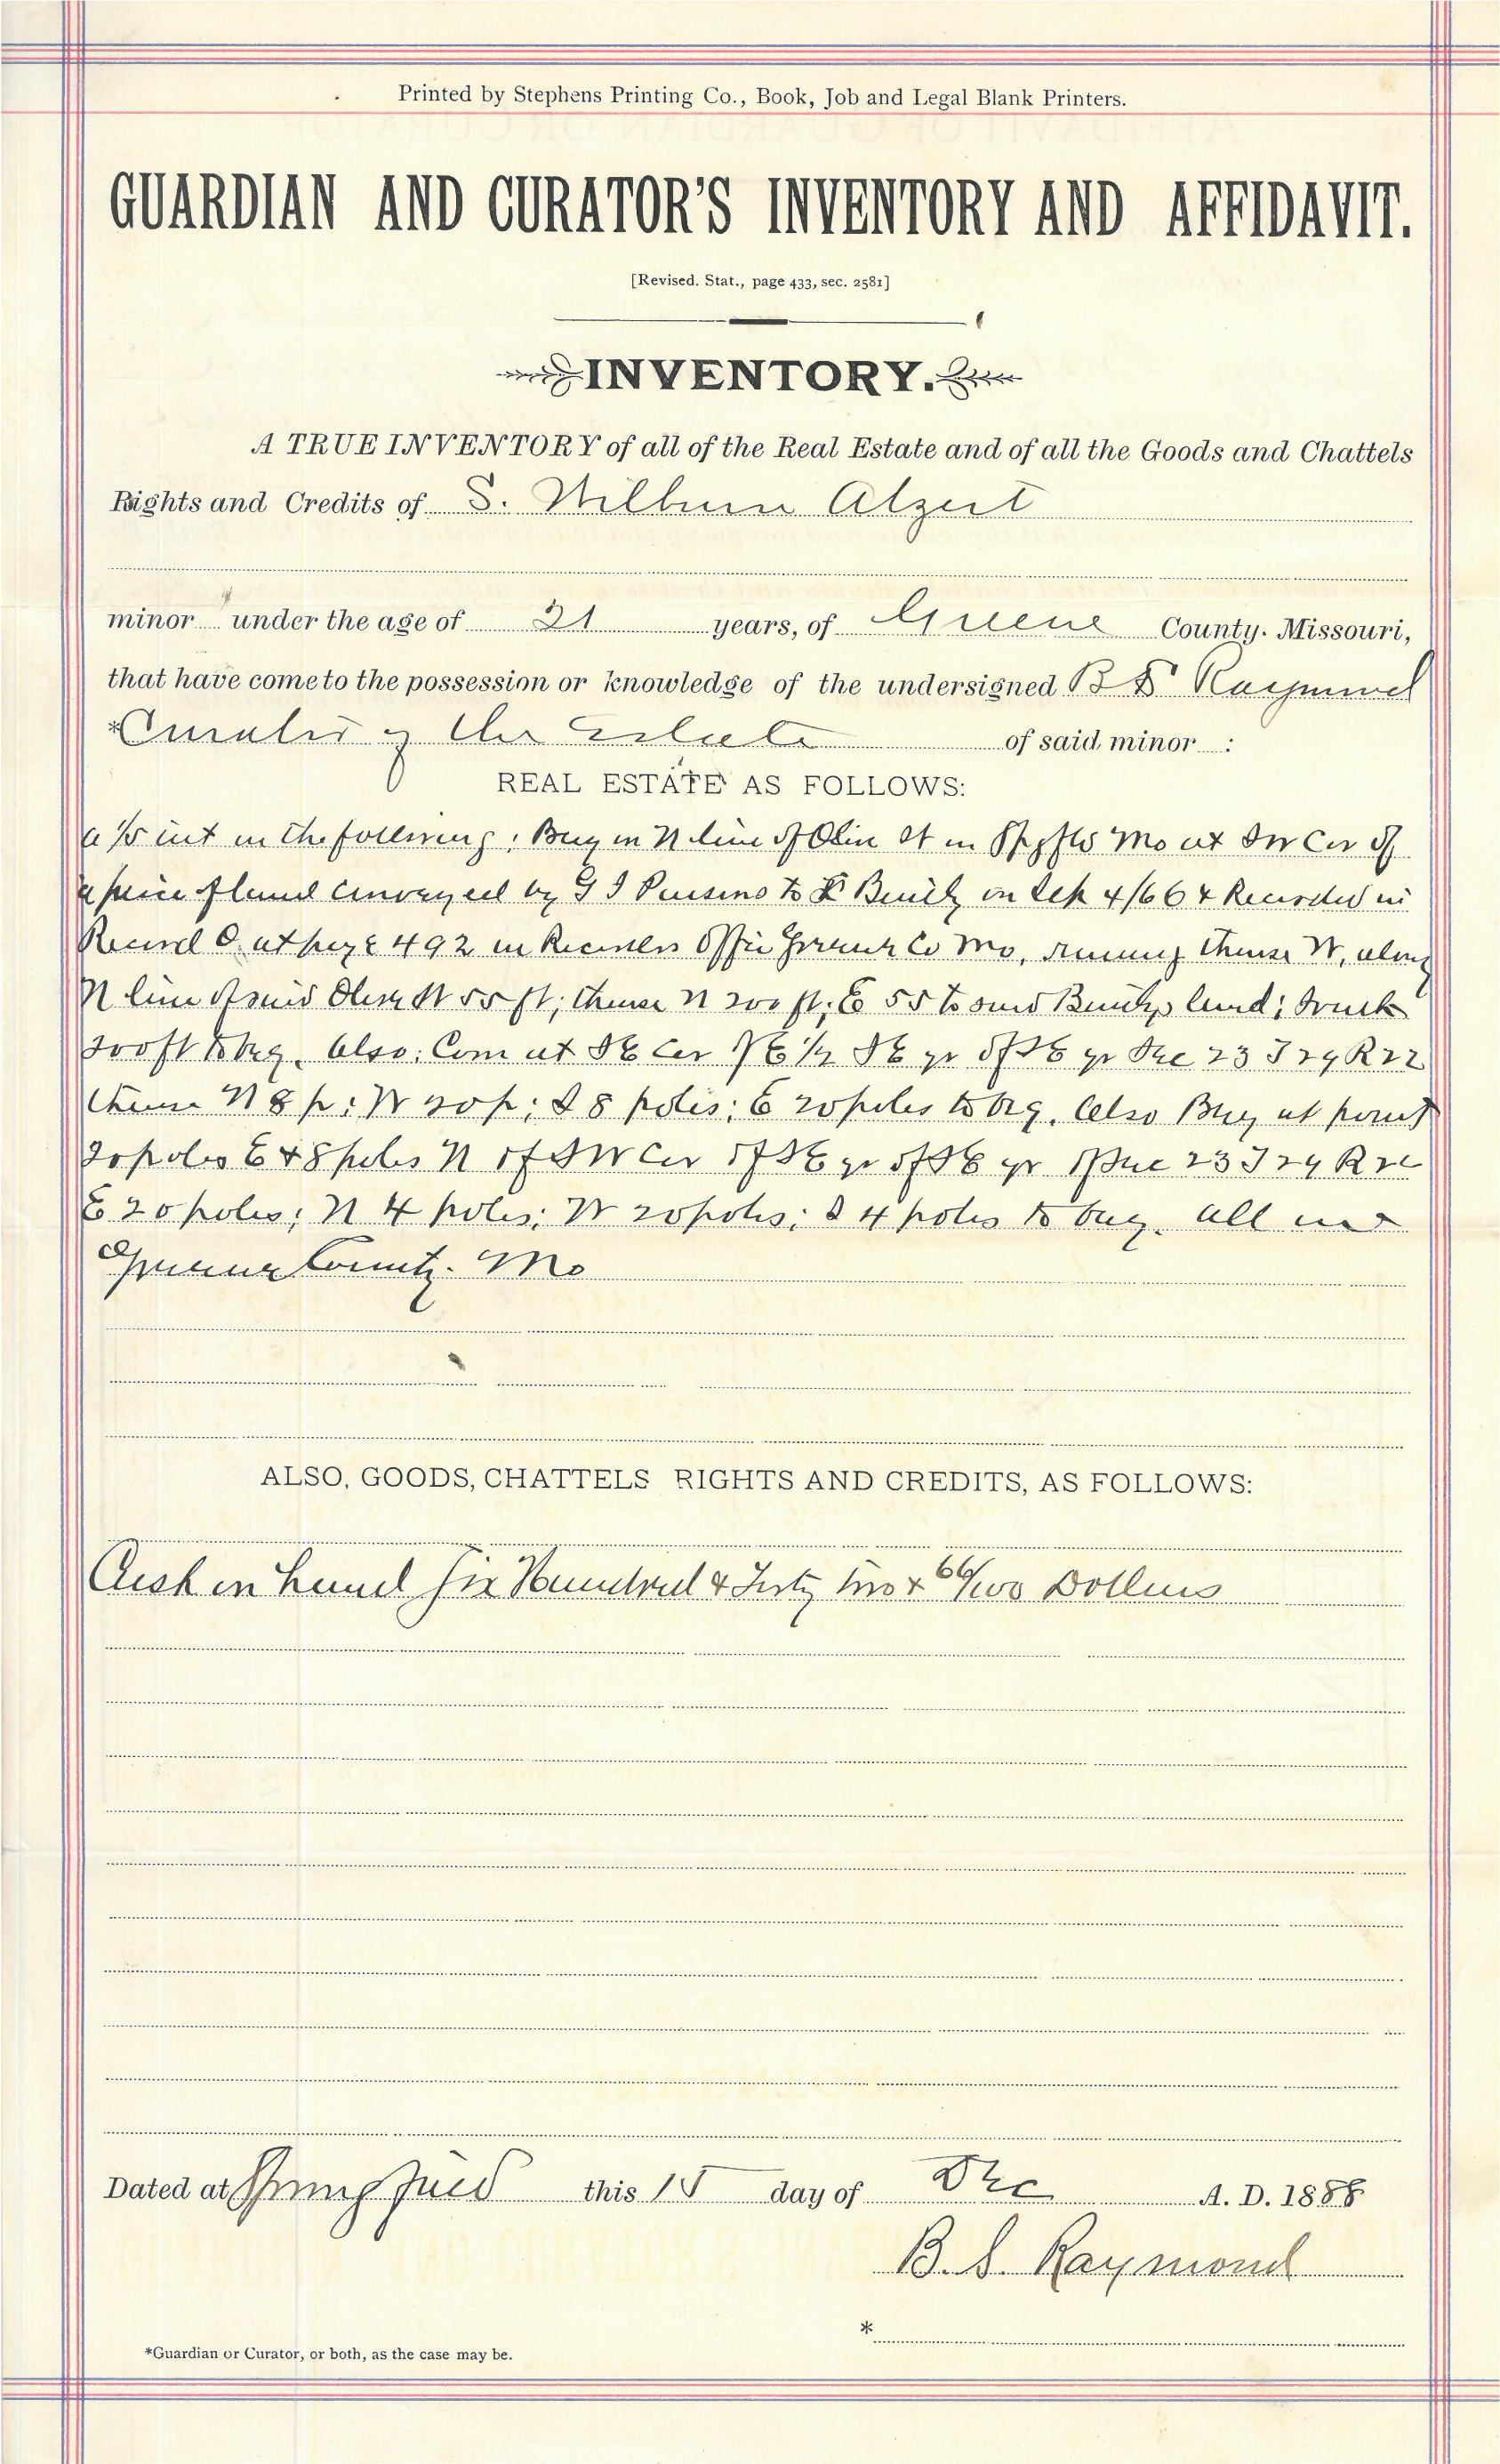 Printed by Stephens Printing Co., Book, Job and Legal Blank Printers.
GUARDIAN AND CURATOR'S INVENTORY AND AFFIDAVIT.
[Revised. Stat., page 433, sec. 2581]
INVENTORY.
A TRUE INVENTORY of all of the Real Estate and of all the Goods and Chattels
Rights and Credits of S. Wilburn Alzert
minor under the age of 21 years, of Greene County. Missouri,
that have come to the possession or knowledge of the undersigned B S Raymond
*Curator of the Estate of said minor :
REAL ESTATE AS FOLLOWS:
a 1/5 int in the following: Beg in N line of Olive St in Spgfld Mo at SW Cor of
a piece of land conveyed by to on Sep 4/66 & Recorded in
Record O at page 492 in Recorders Office Greene Co Mo, running thence W, along
N line of said Olive St 55 ft; thence N 200 ft; E 55 to said land; South
200 ft to beg. Also: Com at SE Cor E 1/2 SE qr of SE qr Sec 23 T 29 R 22
thence N 8 p; W 20 p; S 8 poles; E 20 poles to beg. Also Beg at point
20 poles E & 8 poles N of SW Cor of SE qr of SE qr of Sec 23 T 29 R 22
E 20 poles; N 4 poles; W 20 poles; S 4 poles to beg. all in
Greene County. Mo
ALSO, GOODS, CHATTELS RIGHTS AND CREDITS, AS FOLLOWS:
Cash in hand Six Hundred & two & 66/100 Dollars
Dated at Springfield this 15 day of Dec A. D. 1888
B. S. Raymond
*
*Guardian or Curator, or both, as the case may be.